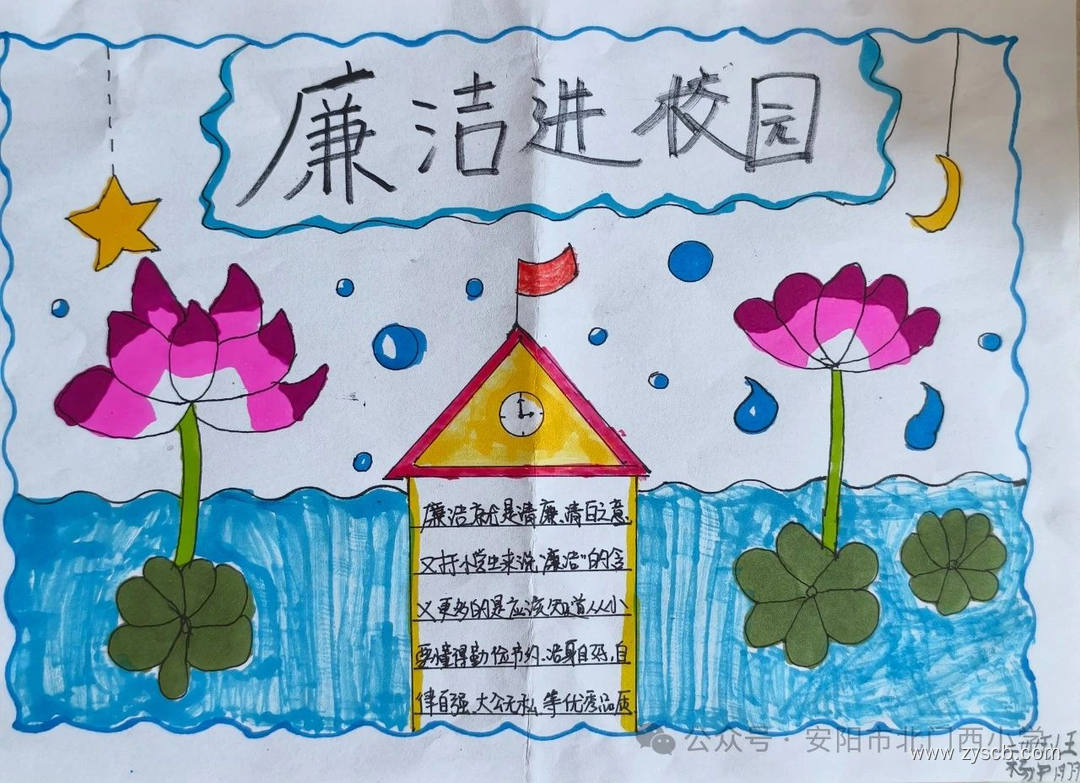 廉洁进校园
廉洁就是清廉、清白之意
又对小学生来说,"廉洁"的含
义更多的是应该知道从小
要懂得勤俭节约、洁身自好,自
律自强、大公无私等优秀品质
公众号·安阳市北门西小学
www.zyscb.com